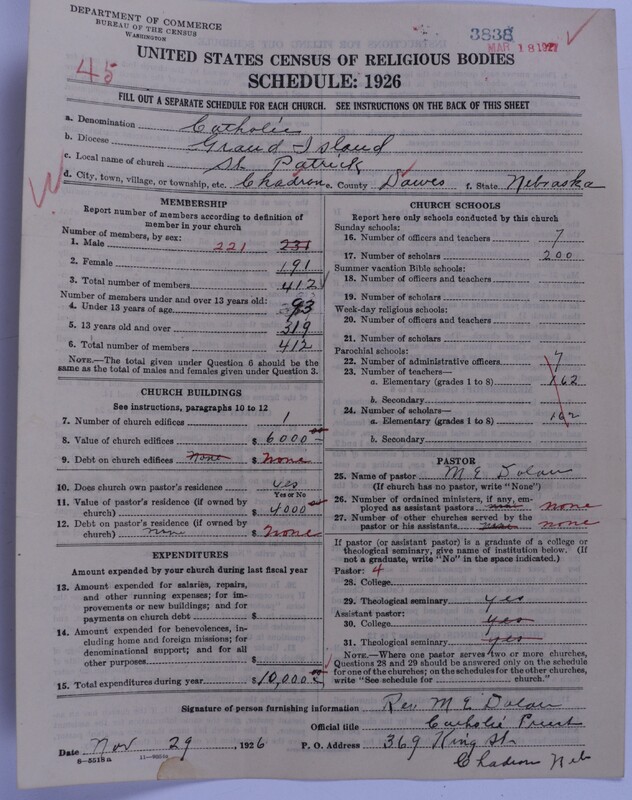 DEPARTMENT OF COMMERCE
BUREAU OF THE CENSUS
WASHINGTON
3838
MAR 18 1927
45
UNITED STATES CENSUS OF RELIGIOUS BODIES
SCHEDULE: 1926
FILL OUT A SEPARATE SCHEDULE FOR EACH CHURCH. SEE INSTRUCTIONS ON THE BACK OF THIS SHEET
a. Denomination Catholic
b. Diocese Grand Island
c. Local name of church St. Patrick
d. City, town, village, or township, etc. Chadron e. County Dawes f. State Nebraska
MEMBERSHIP
Report number of members according to definition of
member in your church
Number of members, by sex:
1. Male 221 231
2. Female 191
3. Total number of members 412
Number of members under and over 13 years old:
4. Under 13 years of age 93
5. 13 years old and over 319
6. Total number of members 412
NOTE.—The total given under Question 6 should be
the same as the total of males and females given under Question 3.
CHURCH BUILDINGS
See instructions, paragraphs 10 to 12
7. Number of church edifices 1
8. Value of church edifices $ 6000 00
9. Debt on church edifices None $ None
10. Does church own pastor's residence yes
Yes or No
11. Value of pastor's residence (if owned by
church) $ 4000 00
12. Debt on pastor's residence (if owned by
church) none $ None
EXPENDITURES
Amount expended by your church during last fiscal year
13. Amount expended for salaries, repairs,
and other running expenses; for im-
provements or new buildings; and for
payments on church debt $
14. Amount expended for benevolences, in-
cluding home and foreign missions; for
denominational support; and for all
other purposes $
15. Total expenditures during year $ 10,000 00
CHURCH SCHOOLS
Report here only schools conducted by this church
Sunday schools:
16. Number of officers and teachers 7
17. Number of scholars 200
Summer vacation Bible schools:
18. Number of officers and teachers
19. Number of scholars
Week-day religious schools:
20. Number of officers and teachers
21. Number of scholars
Parochial schools:
22. Number of administrative officers 7
23. Number of teachers—
a. Elementary (grades 1 to 8) 162
b. Secondary
24. Number of scholars—
a. Elementary (grades 1 to 8) 162
b. Secondary
PASTOR
25. Name of pastor M E Dolan
(If church has no pastor, write "None")
26. Number of ordained ministers, if any, em-
ployed as assistant pastors none
27. Number of other churches served by the
pastor or his assistants none
If pastor (or assistant pastor) is a graduate of a college or
theological seminary, give name of institution below. (If
not a graduate, write "No" in the space indicated.)
Pastor: 4
28. College
29. Theological seminary yes
Assistant pastor:
30. College yes
31. Theological seminary yes
NOTE.—Where one pastor serves two or more churches,
Questions 28 and 29 should be answered only on the schedule
for one of the churches; on the schedules for the other churches,
write "See schedule for church."
Signature of person furnishing information Rev. M E Dolan
Official title Catholic Priest
Date Nov 29, 1926 P. O. Address 369 King St.
8-5518a
Chadron Neb